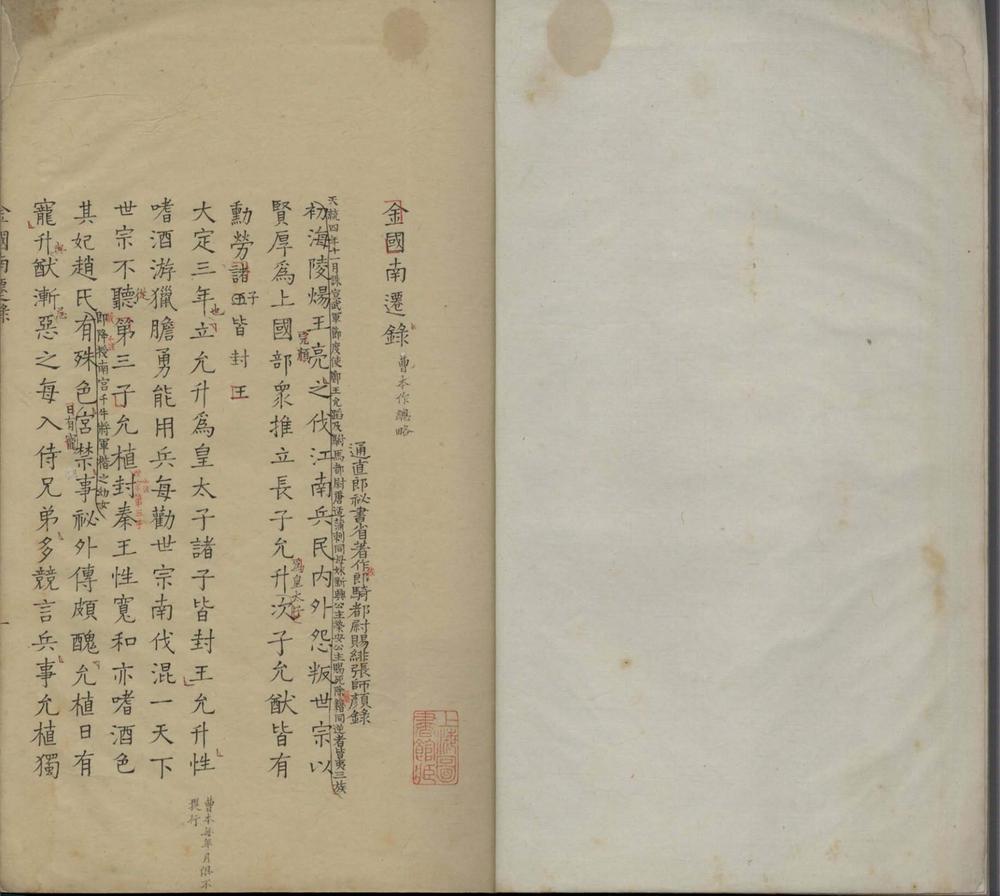 金國南遷錄
曹本作總略
通直郎祕書省著作郎騎都尉賜緋張師顏錄
初海陵煬王亮之伐江南兵民內外怨叛世宗以
完顏
賢厚爲上國部眾推立長子允升次子允猷皆有
爲皇太子
勳勞諸王皆封王
子
大定三年立允升爲皇太子諸子皆封王允升性
也
曹本每年月俱不
提行
嗜酒游獵膽勇能用兵每勸世宗南伐混一天下
世宗不聽第三子允植封秦王性寬和亦嗜酒色
從
卽降授南宮千牛將軍楷之幼女
其妃趙氏有殊色宮禁事祕外傳頗醜允植日有
日有寵
寵升猷漸惡之每入侍兄弟多競言兵事允植獨
金國南遷錄
一
上海圖書館藏